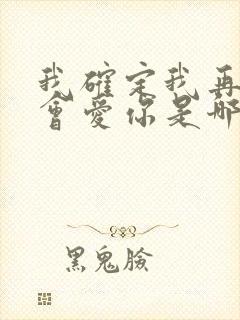 我確定我再
會愛你是哪
黑鬼臉